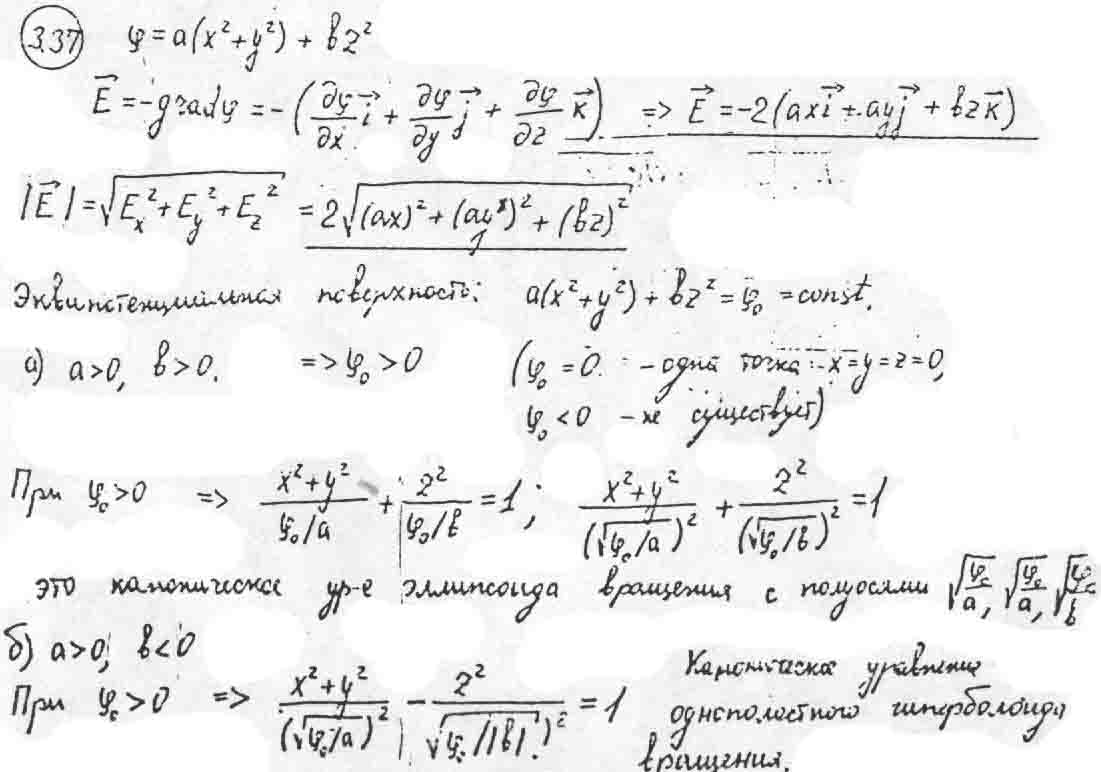 3.37 φ = a(x² + y²) + bz²
E⃗ = -grad φ = -(∂φ/∂x i⃗ + ∂φ/∂y j⃗ + ∂φ/∂z k⃗) => E⃗ = -2(axi⃗ + ayj⃗ + bzk⃗)
|E⃗| = √(Eₓ² + E_y² + E_z²) = 2√((ax)² + (ay)² + (bz)²)
Эквипотенциальная поверхность: a(x² + y²) + bz² = φ₀ = const.
а) a>0, b>0. => φ₀ > 0 (φ₀ = 0 - одна точка - x = y = z = 0,
φ₀ < 0 - не существует)
При φ₀ > 0 => (x² + y²)/(φ₀/a) + z²/(φ₀/b) = 1; (x² + y²)/(√(φ₀/a))² + z²/(√(φ₀/b))² = 1
это каноническое ур-е эллипсоида вращения с полуосями √(φ₀/a), √(φ₀/a), √(φ₀/b)
б) a>0, b<0
При φ₀ > 0 => (x² + y²)/(√(φ₀/a))² - z²/(√(φ₀/|b|))² = 1 Каноническое уравнение
однополостного гиперболоида
вращения.